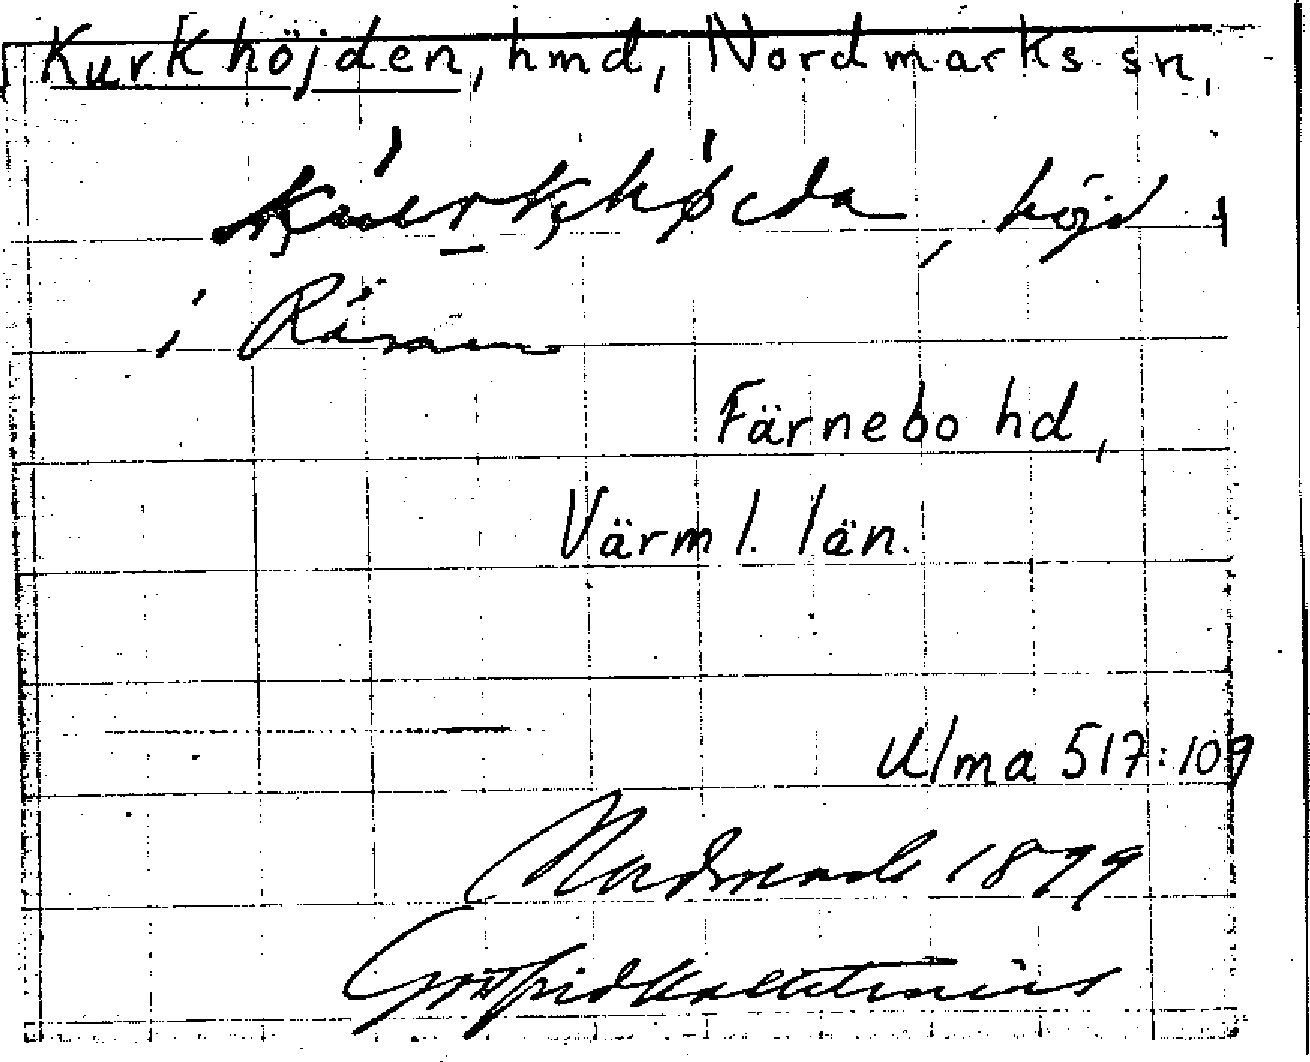 Kurkhöjden, hmd, Nordmarks sn,
höjd
i Rämen
Färnebo hd,
Värml. län.
Ulma 517:109
Nordmark 1899
Gottfrid Kallstenius